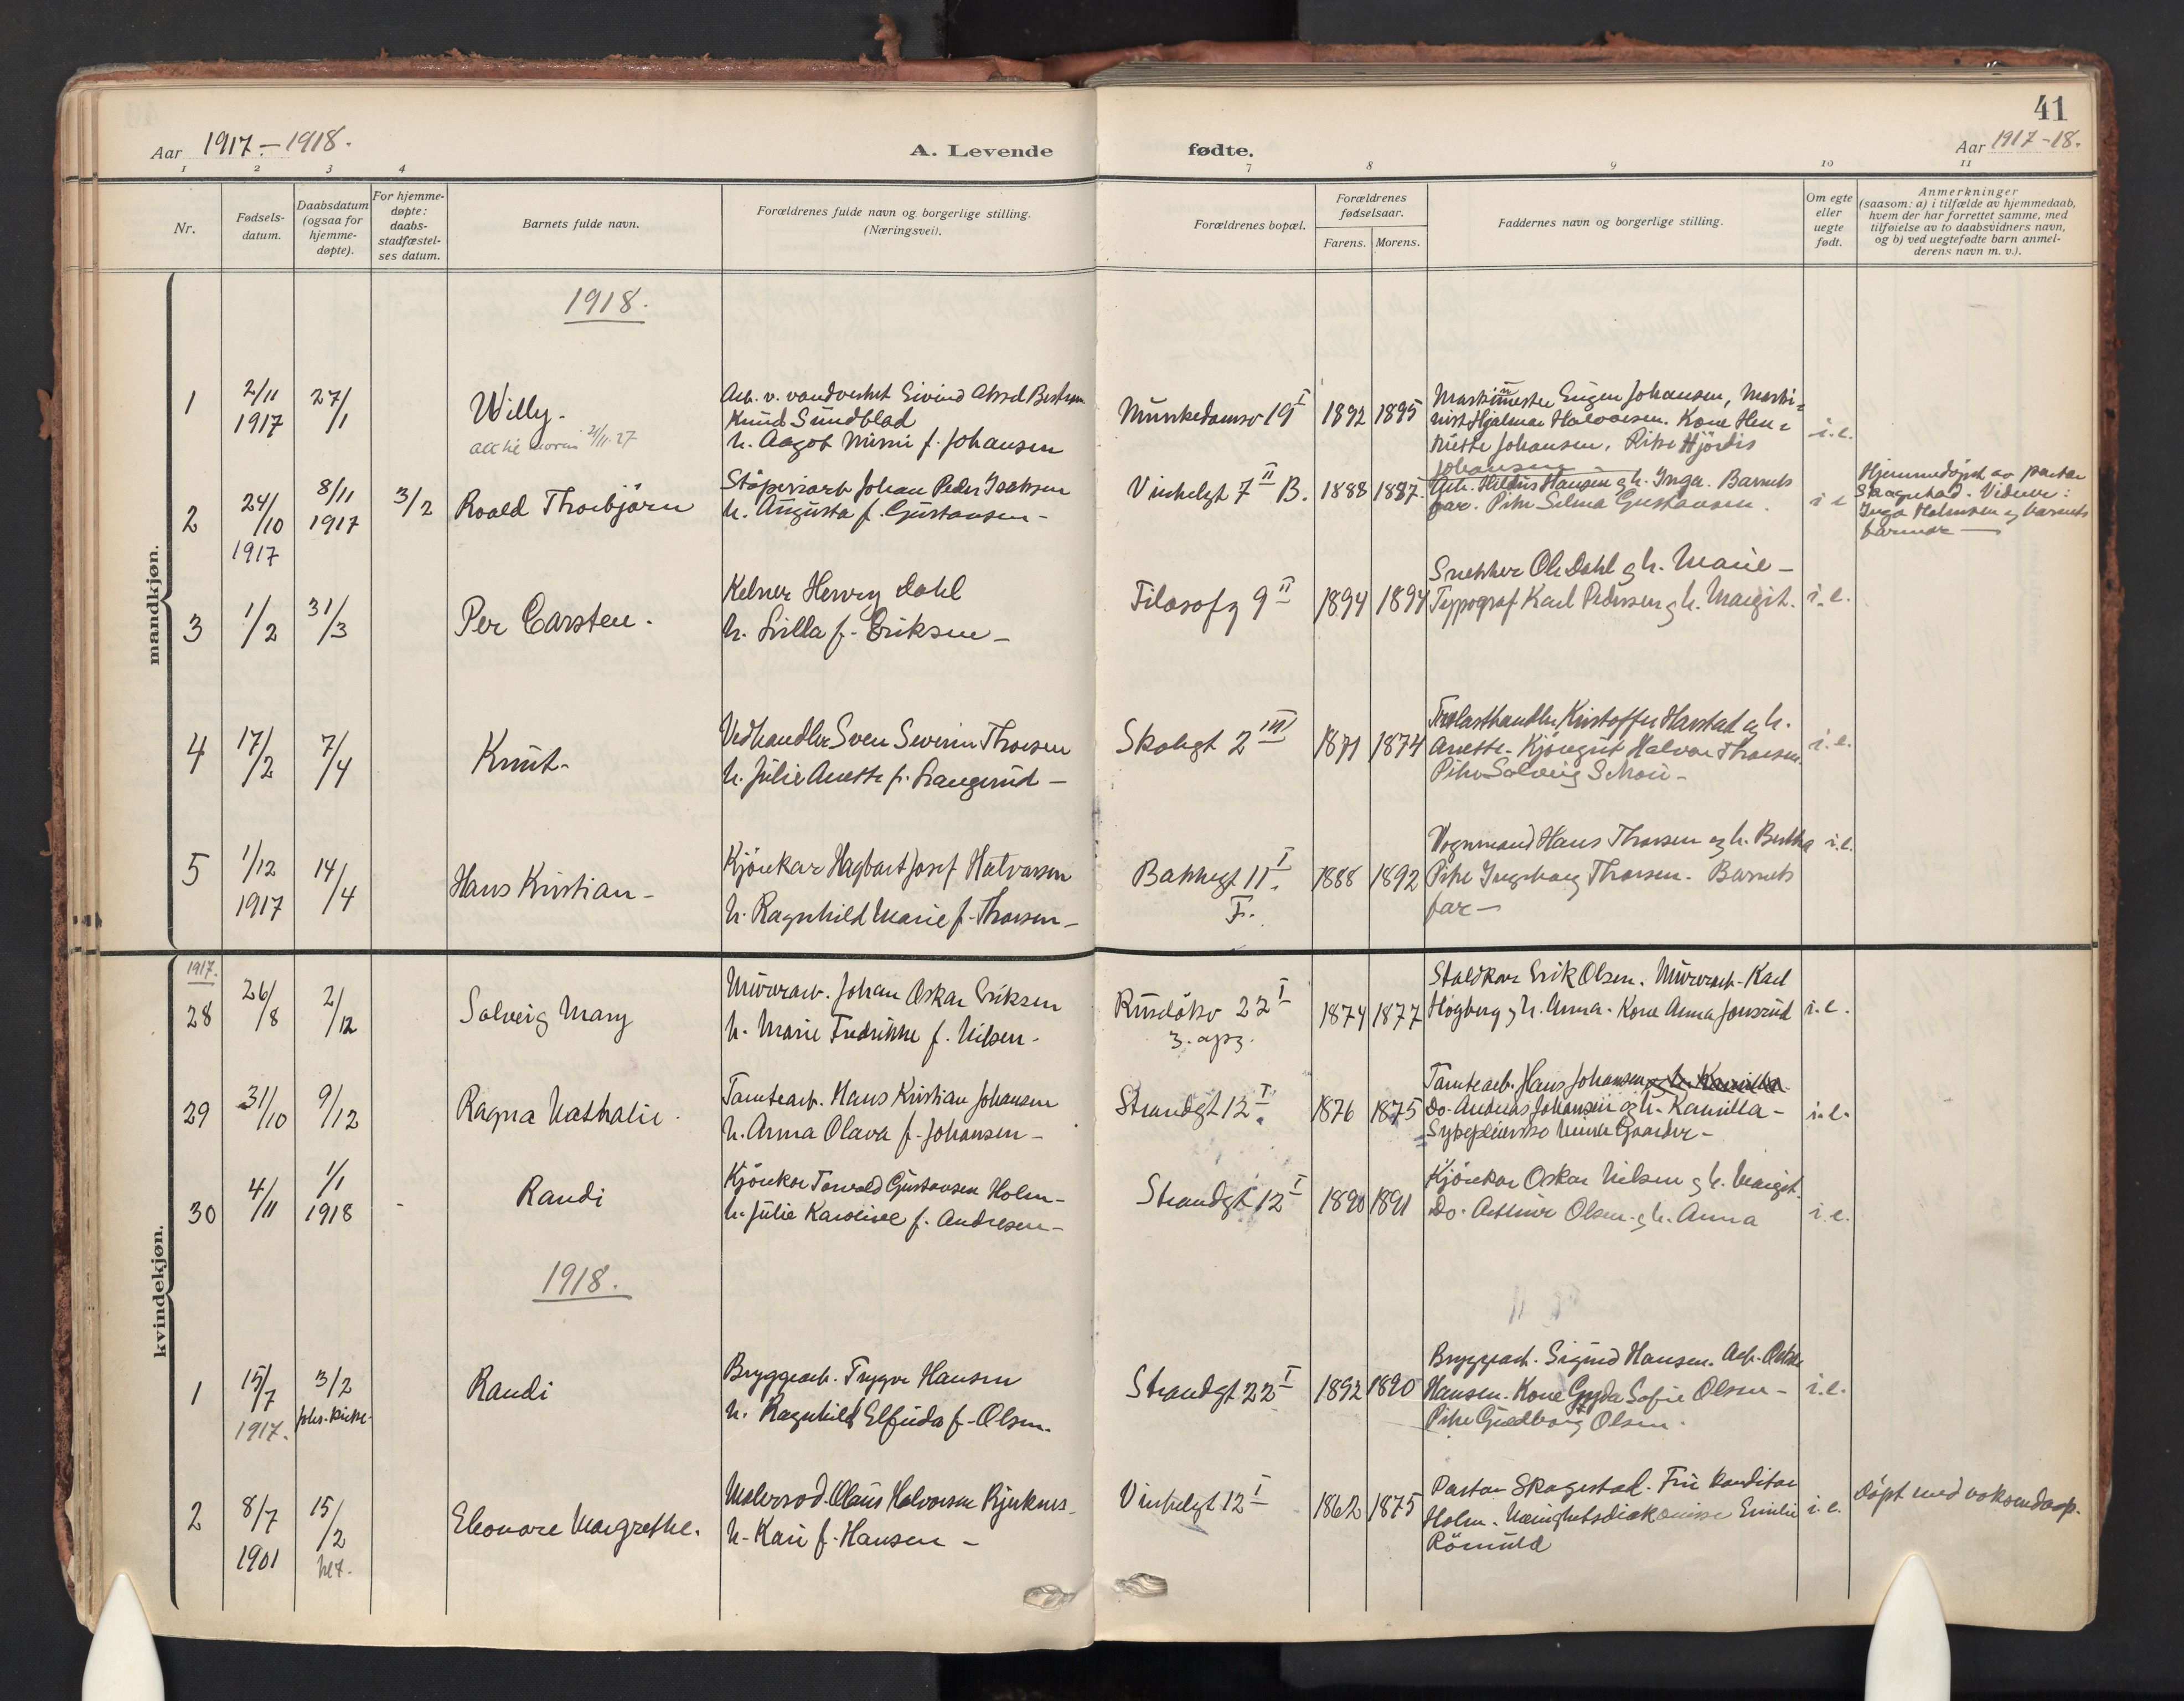 41
Aar 1917.-1918.
A. Levende fødte.
Aar 1917-18.
1 2 3 4 7 8 9 10 11
Nr.
Fødsels-
datum.
Daabsdatum
(ogsaa for
hjemme-
døpte).
For hjemme-
døpte:
daabs-
stadfæstel-
ses datum.
Barnets fulde navn.
Forældrenes fulde navn og borgerlige stilling.
(Næringsvei).
Forældrenes bopæl.
Forældrenes
fødselsaar.
Farens. Morens.
Faddernes navn og borgerlige stilling.
Om egte
eller
uegte
født.
Anmerkninger
(saasom: a) i tilfælde av hjemmedaab,
hvem der har forrettet samme, med
tilføielse av to daabsvidners navn,
og b) ved uegtefødte barn anmel-
derens navn m. v.).
mandkjøn.
1918.
1
2/11
1917
27/
/1
Willy.
21/11.27
Arb. v. vandverket Eivind
Knud Sundblad
h. Aagot f. Johansen
Munkedamsv 19 I
1892 1895
Maskinmester Eugen Johansen, Maski-
nist Hjalmar Halvorsen. Kone Hen-
Johansen. Pike Hjördis
Johansen
i.e.
2
24/
/10
1917
8/11
1917
3/2
Roald Thorbjörn
Støperiarb Johan Peder Isaksen
h. Augusta f. Gustavsen-
Vinkelgt 7 II B.
1888 1887.
Arb. Hansen og h. Inga. Barnets
far. Pike Selma Gustavsen.
i e
Hjemmedøpt av pastor
Skagestad. Vidner:
Inga Holmsen og barnets
farmor
3
1/
/2
31/
/3
Per Carsten.
Kelner Henry Dahl
h. f. Eriksen-
Filosofg 9 II
1894 1894
Snekker Ole Dahl og h. Marie-
Typograf Karl Pedersen og h. Margit.
i.e.
4
17/
/2
7/
/4
Knut-
Vedhandler Sven Severin Thorsen
h. Julie Anette f. Haugerud-
Skolegt 2 III
1871 1874
Trelasthandler Kristoffer Harstad og h.
Anette- Halvor Thorsen.
Pike Solveig Schou-
i.e.
5
1/12
1917
14/
/4
Hans Kristian-
Kjörekar Hagbart Josef Halvorsen
h. Ragnhild Marie f. Thorsen-
Bakkegt 11 I
F.
1888 1892
Vognmand Hans Thorsen og h. Bertha
Pike Ingeborg Thorsen. Barnets
far-
i.e.
kvindekjøn.
1917.
28
26/
/8
2/
/12
Solveig Mary
Murerarb. Johan Oskar Eriksen
h. Marie Fredrikke f. Nilsen.
Rusdökv 22 I
3. opg.
1874 1877
Staldkar Erik Olsen. Murerarb. Karl
Högberg og h. Anna. Kone Anna Jonsrud
i.e.
29
31/
/10
9/
/12
Ragna Nathalie.
Tomtearb. Hans Kristian Johansen
h. Anna Olava f. Johansen-
Strandgt 12 I
1876 1875
Tomtearb. Hans Johansen og h. Kamilla.
Do. Andreas Johansen og h. Kamilla-
Sykepleierske Gaarder-
i.e.
30
4/
/11
1/1
1918
-
Randi
Kjörekar Torvald Gustavsen Holm-
h. Julie Karoline f. Andresen-
Strandgt 12 I
1890 1891
Kjörekar Oskar Nilsen og h. Margit.
Do. Arthur Olsen og h. Anna
i.e.
1918.
1
15/
/7
1917.
3/2
Johs. kirke.
Randi
Bryggearb. Trygve Hansen
h. Ragnhild Elfrida f. Olsen.
Strandgt 22 I
1892 1890
Bryggearb. Sigurd Hansen. Arb. Oskar
Hansen. Kone Gyda Sofie Olsen-
Pike Guldborg Olsen.
i.e.
2
8/
/7
1901
15/
/2
Eleonore Margrethe.
Olaus Halvorsen Bjerknes.
h. Kari f. Hansen-
Vinkelgt 12 I
1862 1875
Pastor Skagestad. Fru Konditor
Holm. Menighetsdiakonisse Emilie
Römuld
i.e.
Döpt med voksendaap.